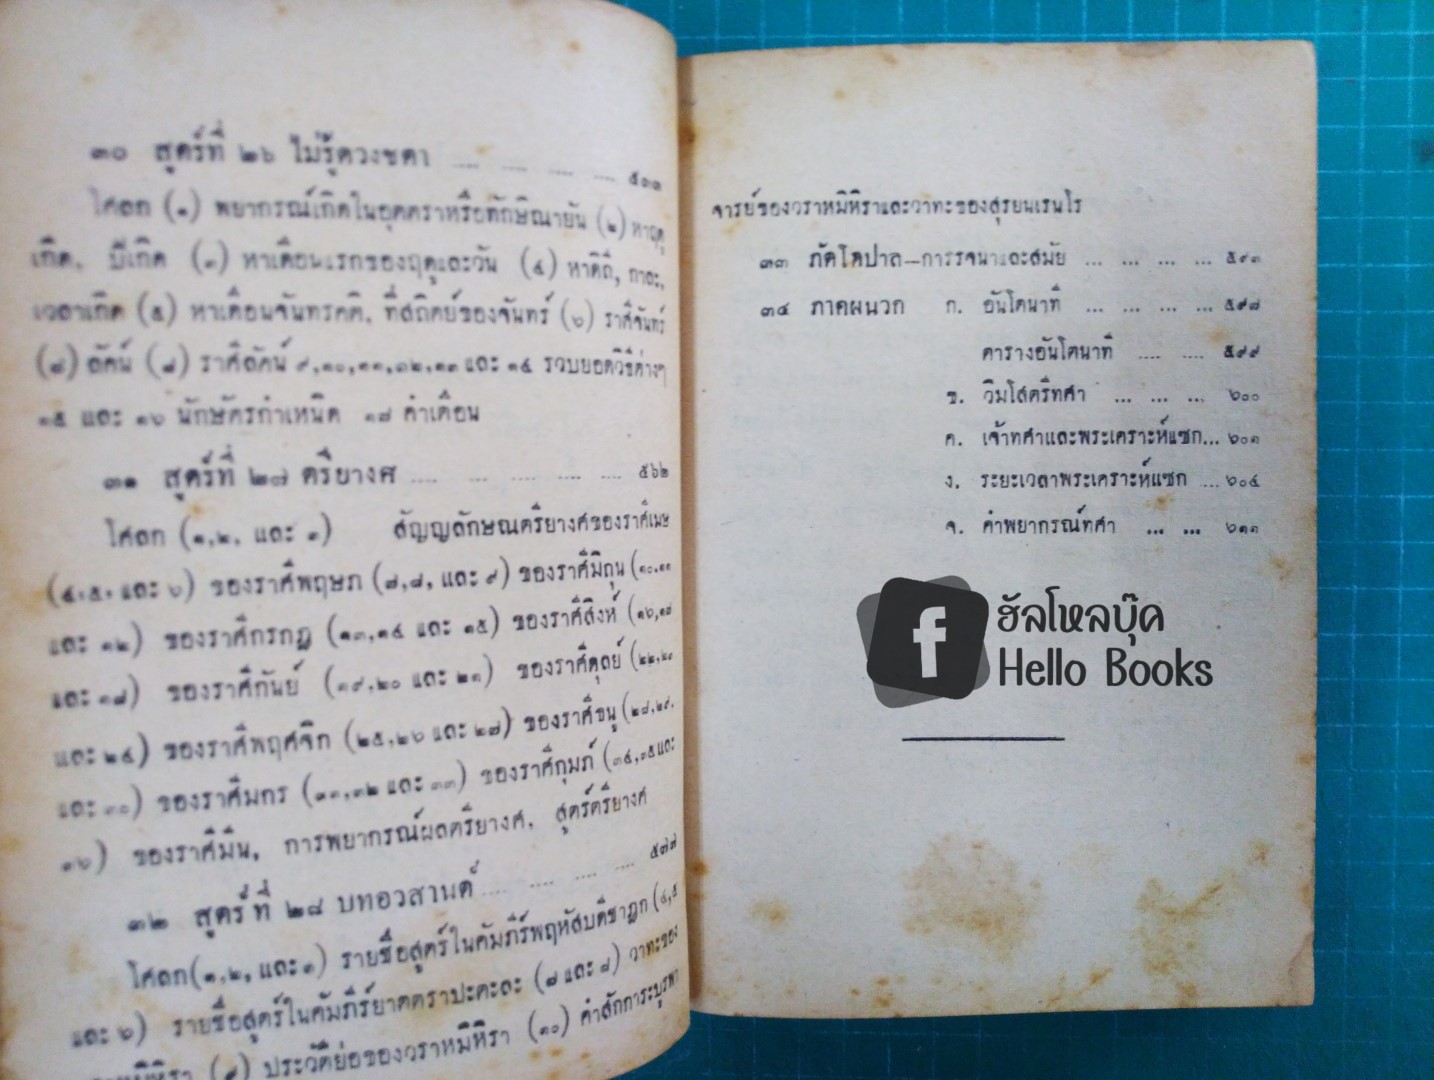 ๓๐ สูตร์ที่ ๒๖ ไม่รู้ดวงชตา .... .... .... ....
โศลก (๑) พยากรณ์เกิดในอุตตราหรือทักษิณายัน (๒) หาฤดู
เกิด, ปีเกิด (๓) หาเดือนแรกของฤดูและวัน (๔) หาดิถี, กาละ,
เวลาเกิด (๕) หาเดือนจันทรคติ, ที่สถิตย์ของจันทร์ (๖) ราศีจันทร์
(๗) ลัคน์ (๘) ราศีลัคน์ ๙,๑๐,๑๑,๑๒,๑๓ และ ๑๔ รวบยอดวิธีต่างๆ
๑๕ และ ๑๖ นักษัตรกำเหนิด ๑๗ คำเตือน
๓๑ สูตร์ที่ ๒๗ ตรียางศ .... .... .... .... .... ๕๖๒
โศลก (๑,๒, และ ๓) สัญญลักษณตรียางศของราศีเมษ
(๔,๕, และ ๖) ของราศีพฤษภ (๗,๘, และ ๙) ของราศีมิถุน (๑๐,๑๑
และ ๑๒) ของราศีกรกฎ (๑๓,๑๔ และ ๑๕) ของราศีสิงห์ (๑๖,๑๗
และ ๑๘) ของราศีกันย์ (๑๙,๒๐ และ ๒๑) ของราศีตุลย์ (๒๒,๒๓
และ ๒๔) ของราศีพฤศจิก (๒๕,๒๖ และ ๒๗) ของราศีธนู (๒๘,๒๙,
และ ๓๐) ของราศีมกร (๓๑,๓๒ และ ๓๓) ของราศีกุมภ์ (๓๔,๓๕ และ
๓๖) ของราศีมีน, การพยากรณ์ผลตรียางศ, สูตร์ตรียางศ
๓๒ สูตร์ที่ ๒๘ บทอวสานต์ .... .... .... .... ๕๗๗
โศลก(๑,๒, และ ๓) รายชื่อสูตร์ในคัมภีร์พฤหัสบดีชาฎก (๔,๕
และ ๖) รายชื่อสูตร์ในคัมภีร์ยาตตราปะตะละ (๗ และ ๘) วาทะของ
(๙) ประวัติย่อของวราหมิหิรา (๑๐) คำสักการะบูรพา
จารย์ของวราหมิหิราและวาทะของสุรยนเรนโร
๓๓ ภัตโตปาล—การรจนาและสมัย ... ... ... ... ๕๙๓
๓๔ ภาคผนวก ก. อันโตนาที ... ... ... ... ๕๙๘
ตารางอันโตนาที .... .... ๕๙๙
ข. วิมโสตรีทศา ... ... ... ๖๐๐
ค. เจ้าทศาและพระเคราะห์แซก... ๖๐๑
ง. ระยะเวลาพระเคราะห์แซก ... ๖๐๔
จ. คำพยากรณ์ทศา ... ... ๖๑๑
f ฮัลโหลบุ๊ค
Hello Books